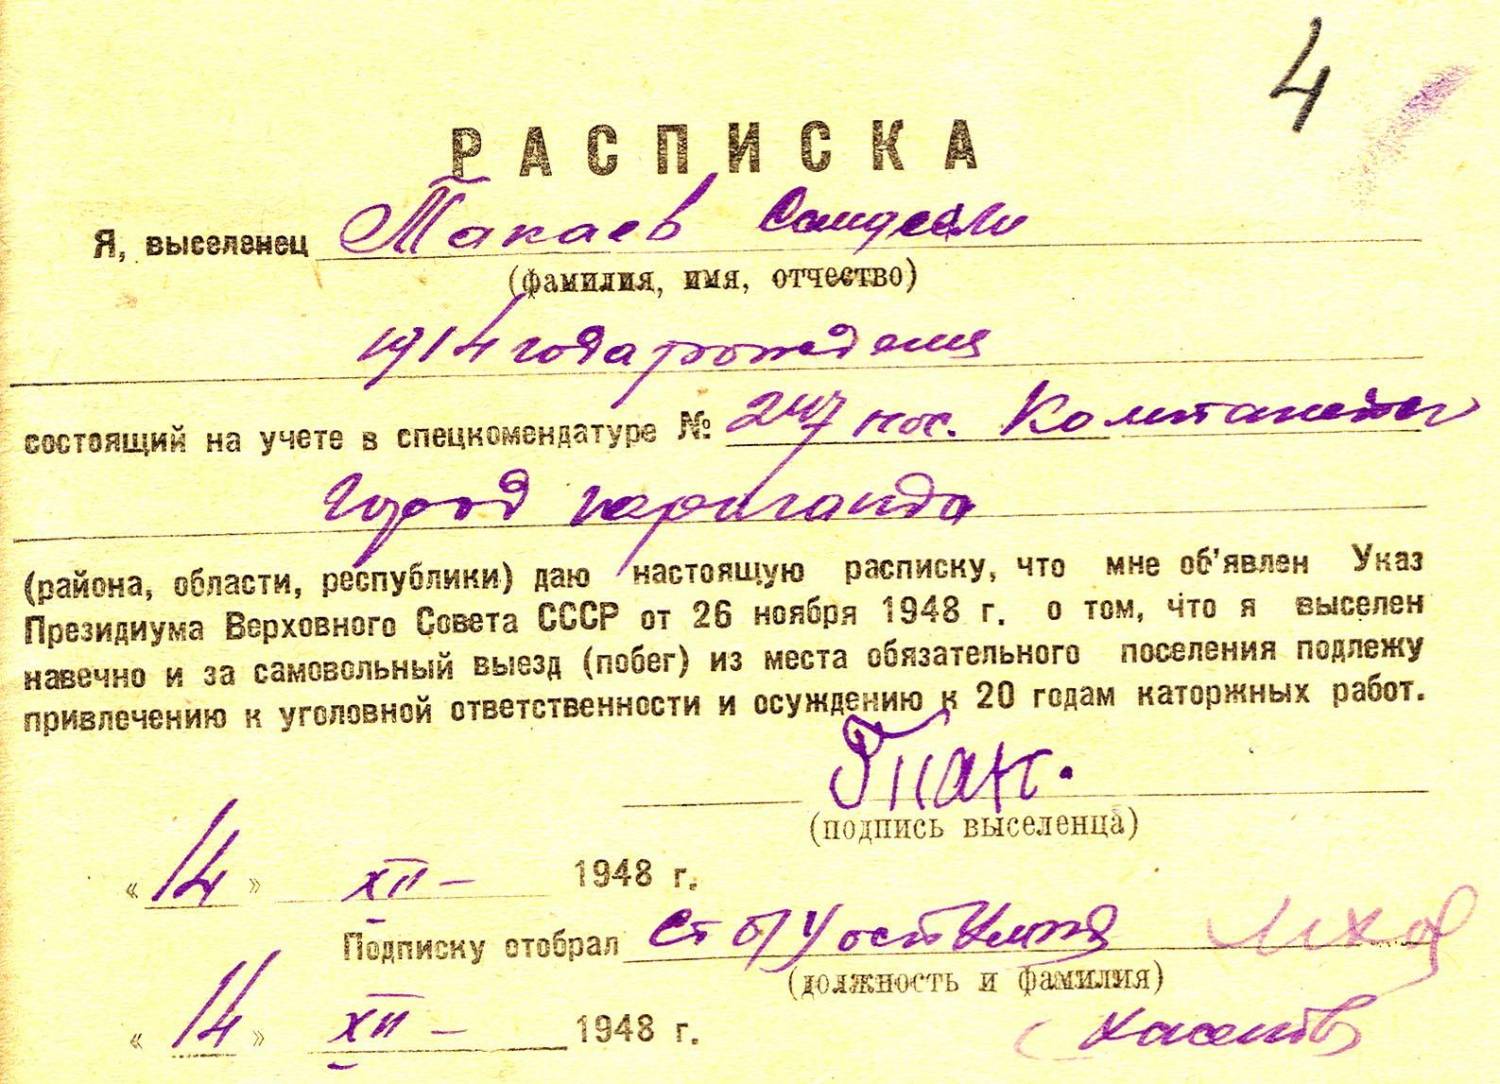 4
РАСПИСКА
Я, выселенец Такаев Саидсели
(фамилия, имя, отчество)
1914 года рождения
состоящий на учете в спецкомендатуре № 247 пос. Компанейск
Город Караганда
(района, области, республики) даю настоящую расписку, что мне об'явлен Указ
Президиума Верховного Совета СССР от 26 ноября 1948 г. о том, что я выселен
навечно и за самовольный выезд (побег) из места обязательного поселения подлежу
привлечению к уголовной ответственности и осуждению к 20 годам каторжных работ.
Так.
(подпись выселенца)
« 14 » XII – 1948 г.
Подписку отобрал Ст о/у
(должность и фамилия)
« 14 » XII – 1948 г.